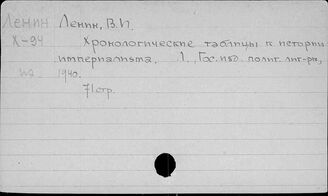 Ленин Ленин, В.И.
X-94 Хронологические таблицы к истории
империализма. Л., Гос. изд. полит. лит-ры,
1940.
71 стр.